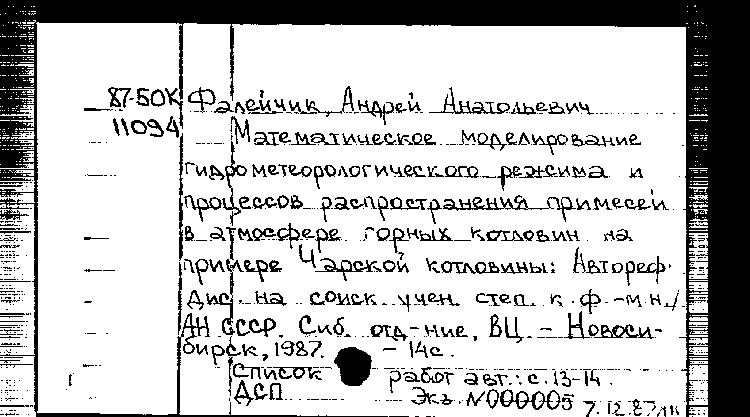 87-50К Фалейчик, Андрей Анатольевич
11094 Математическое моделирование
гидрометеорологического режима и
процессов распространения примесей
в атмосфере горных котловин на
примере Чарской котловины: Автореф.
Дис. на соиск. учен. степ. к.ф.-м.н./
АН СССР. Сиб. отд-ние, ВЦ. - Новоси-
бирск, 1987. - 14с.
Список работ авт.: с. 13-14.
ДСП Экз. N000005 7.12.87